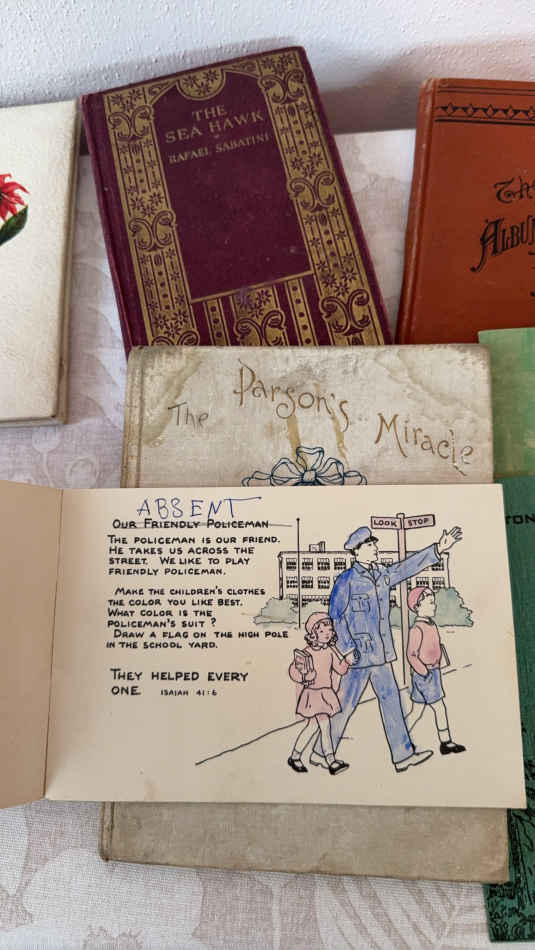 THE
SEA HAWK
RAFAEL SABATINI
The
ALBUM
The Parson's Miracle
TON
ABSENT
OUR FRIENDLY POLICEMAN
THE POLICEMAN IS OUR FRIEND.
HE TAKES US ACROSS THE
STREET. WE LIKE TO PLAY
FRIENDLY POLICEMAN.
MAKE THE CHILDREN'S CLOTHES
THE COLOR YOU LIKE BEST.
WHAT COLOR IS THE
POLICEMAN'S SUIT?
DRAW A FLAG ON THE HIGH POLE
IN THE SCHOOL YARD.
THEY HELPED EVERY
ONE. ISAIAH 41:6
LOOK STOP